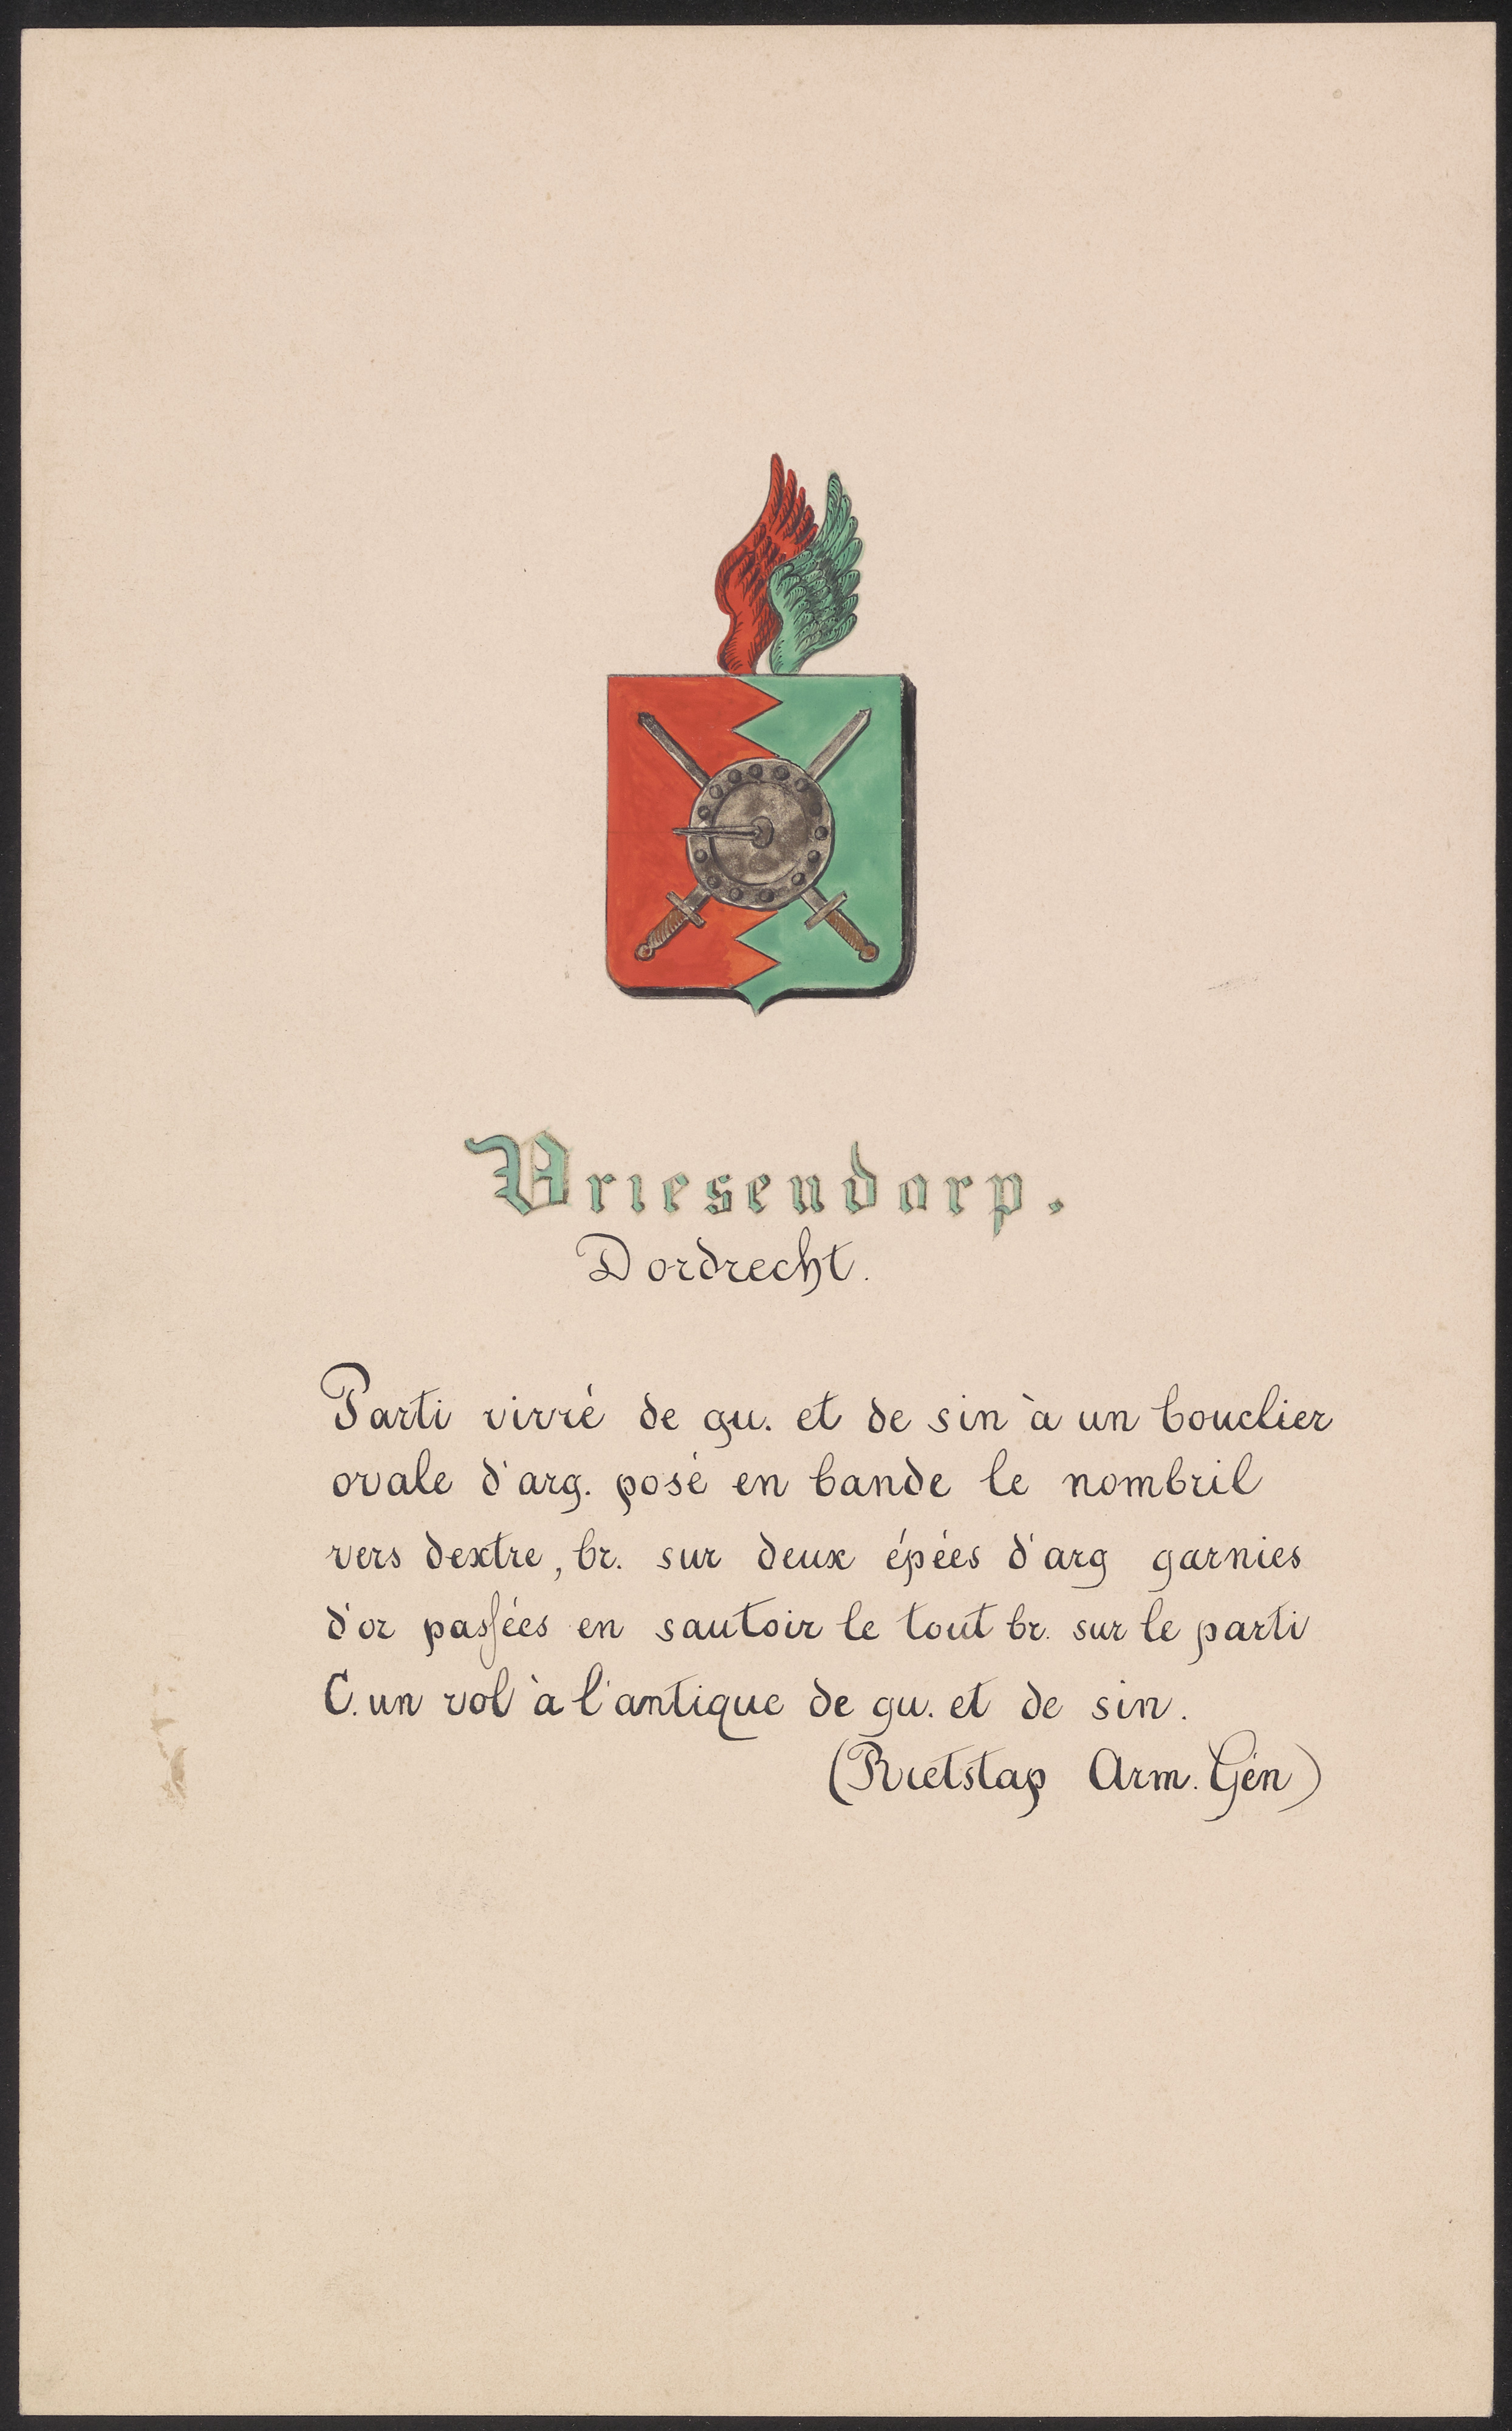 Vriesendorp.
Dordrecht.
Parti vivré de gu. et de sin à un bouclier
ovale d'arg. posé en bande le nombril
vers dextre, br. sur deux épées d'arg garnies
d'or passées en sautoir le tout br. sur le parti
C. un vol à l'antique de gu. et de sin.
(Rietstap Arm. Gén)